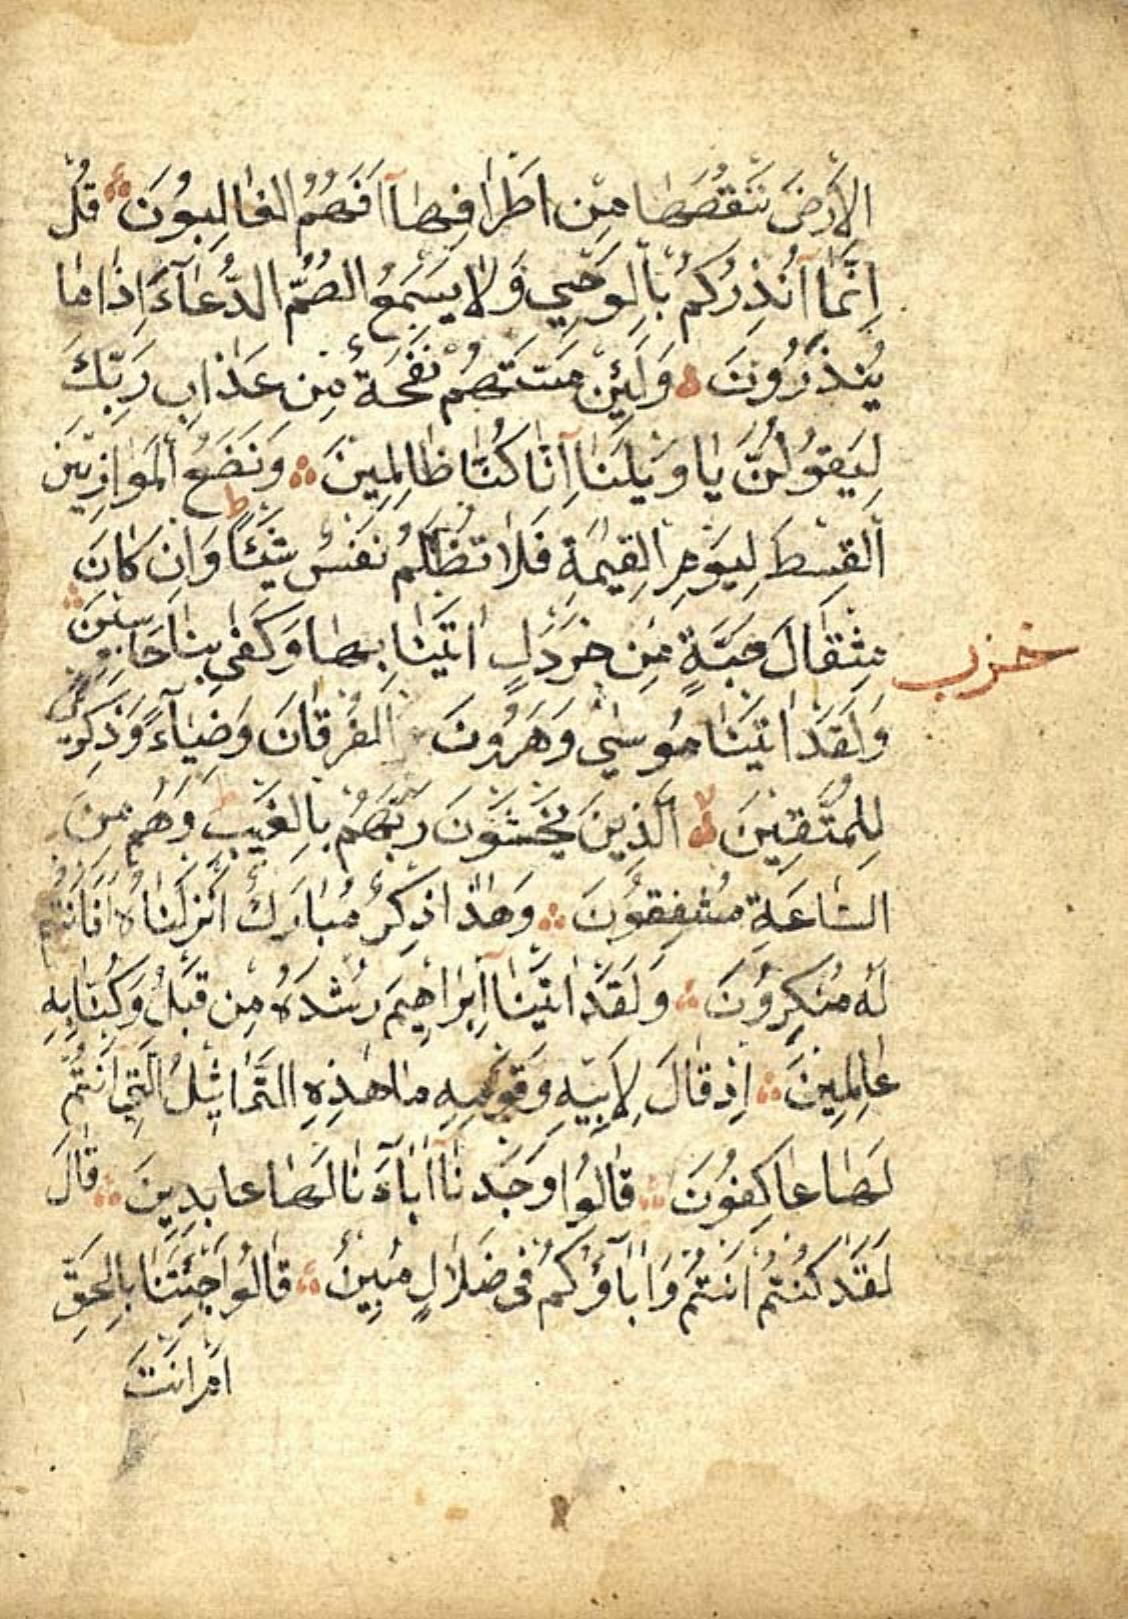 الْأَرْضَ نَنْقُصُهَا مِنْ اَطْرَافِهَآ اَفَهُمُ الْغَالِبُونَ قُلْ
اِنَّمَآ اُنْذِرُكُمْ بِالْوَحْيِ وَلَا يَسْمَعُ الصُّمُّ الدُّعَآءَ اِذَا مَا
يُنْذَرُونَ وَلَئِنْ مَسَّتْهُمْ نَفْحَةٌ مِنْ عَذَابِ رَبِّكَ
لَيَقُولُنَّ يَا وَيْلَنَآ اِنَّا كُنَّا ظَالِمِينَ وَنَضَعُ الْمَوَازِينَ
الْقِسْطَ لِيَوْمِ الْقِيٰمَةِ فَلَا تُظْلَمُ نَفْسٌ شَيْئًا ط وَاِنْ كَانَ
مِثْقَالَ حَبَّةٍ مِنْ خَرْدَلٍ اَتَيْنَا بِهَا وَكَفٰى بِنَا حَاسِبِينَ
حزب
وَلَقَدْ اٰتَيْنَا مُوسٰي وَهٰرُونَ الْفُرْقَانَ وَضِيَآءً وَذِكْرًى
لِلْمُتَّقِينَ لا اَلَّذِينَ يَخْشَوْنَ رَبَّهُمْ بِالْغَيْبِ ط وَهُمْ مِنَ
السَّاعَةِ مُشْفِقُونَ وَهٰذَا ذِكْرٌ مُبَارَكٌ اَنْزَلْنَاهُ اَفَاَنْتُمْ
لَهُ مُنْكِرُونَ وَلَقَدْ اٰتَيْنَآ اِبْرَاهِيمَ رُشْدَهُ مِنْ قَبْلُ وَكُنَّا بِهِ
عَالِمِينَ اِذْ قَالَ لِاَبِيهِ وَقَوْمِهِ مَا هٰذِهِ التَّمَاثِيلُ الَّتِي اَنْتُمْ
لَهَا عَاكِفُونَ قَالُوا وَجَدْنَآ اٰبَآءَنَا لَهَا عَابِدِينَ قَالَ
لَقَدْ كُنْتُمْ اَنْتُمْ وَاٰبَآؤُكُمْ فِى ضَلَالٍ مُبِينٍ قَالُوا اَجِئْتَنَا بِالْحَقِّ
اَمْ اَنْتَ